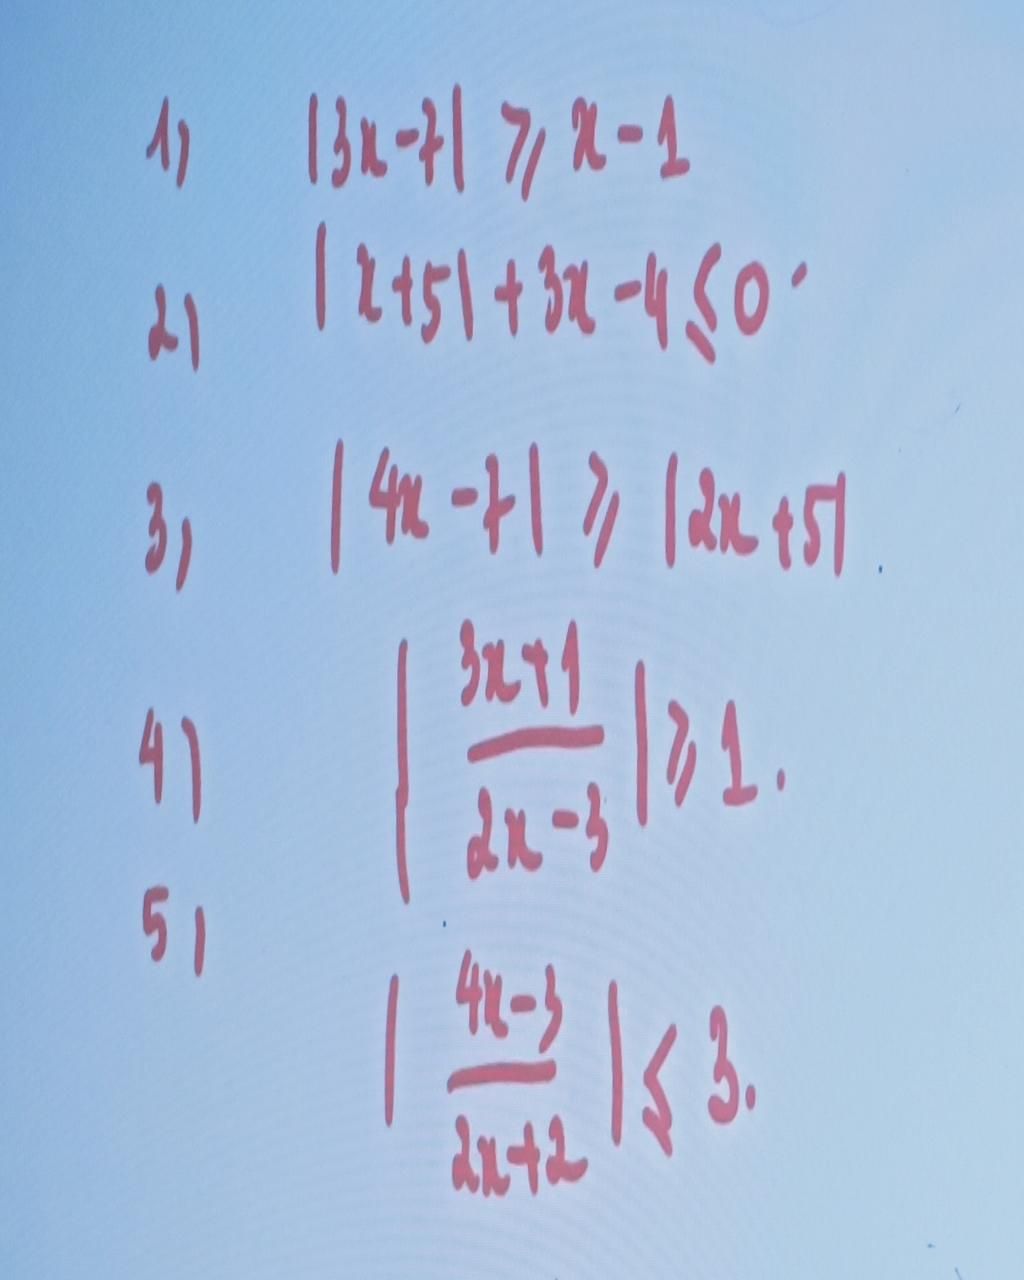 1) |3x-7| ⩾ x-1
2) |x+5| + 3x - 4 ≤ 0.
3, |4x-7| ⩾ |2x+5|.
4) |(3x+1)/(2x-3)| ⩾ 1.
5, |(4x-3)/(2x+2)| ≤ 3.